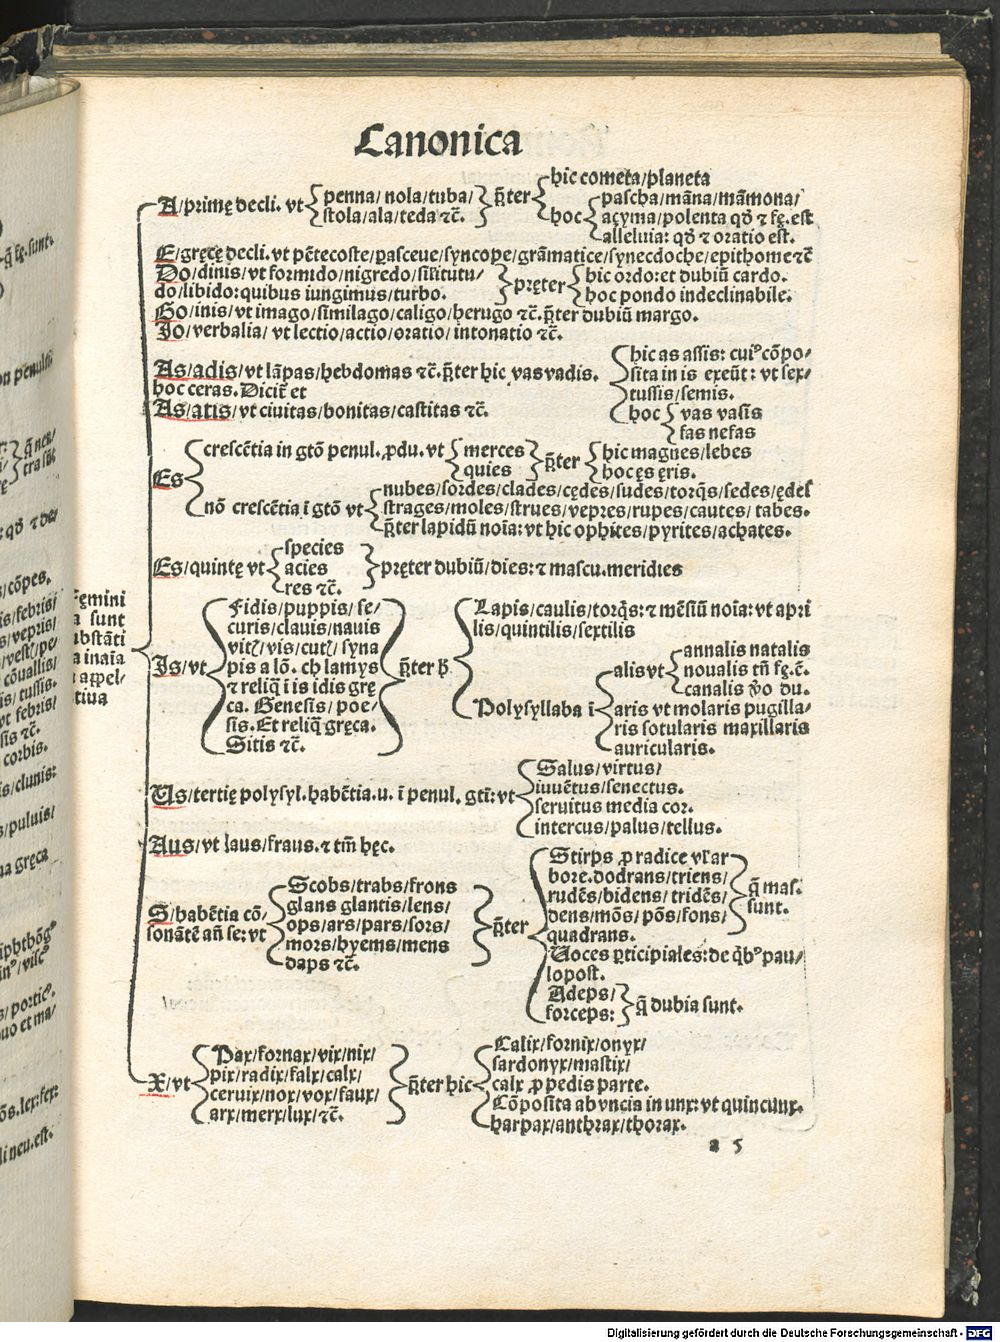 Canonica
A/primę decli. vt
penna/ nola/tuba/
stola/ala/teda ⁊c̃.
p̃ter
hic cometa/planeta
hoc
pascha/mãna/mãmona/
açyma/polenta qđ ⁊ fę. est
alleluia: qđ ⁊ oratio est.
E/gręcę decli. vt pẽtecoste/parasceue/syncope/grãmatice/synecdoche/epithome ⁊c̃
Do/dinis/vt formido/nigredo/similitu/
do/libido: quibus iungimus/turbo.
pręter
hic ordo: et dubiũ cardo.
hoc pondo indeclinabile.
Go/inis/vt imago/similago/caligo/herugo ⁊c̃. p̃ter dubiũ margo.
Io/verbalia/ vt lectio/actio/oratio/intonatio ⁊c̃.
As/adis/vt lãpas/hebdomas ⁊c̃. p̃ter hic vas vadis.
hoc ceras. Dicit̃ et
As/atis/vt ciuitas/bonitas/castitas ⁊c̃.
hic as assis: cuiꝰ cõpo/
sita in is exeũt: vt sex/
tussis/semis.
hoc
vas vasis
fas nefas
Es
crescẽtia in gtõ penul. ꝓdu. vt
merces
quies
p̃ter
hic magnes/lebes
hoc ęs ęris.
nõ crescẽtia ĩ gtõ vt
nubes/sordes/clades/cędes/sudes/torq̃s/sedes/ędes
strages/moles/strues/vepres/rupes/cautes/ tabes.
p̃ter lapidũ noĩa: vt hic ophites/pyrites/achates.
Es/quintę vt
species
acies
res ⁊c̃.
pręter dubiũ/dies: ⁊ mascu. meridies
Fęmini
a sunt
ubstãti
a inaĩa
t appel-
tiua
Is/vt
Fidis/puppis/ se/
curis/clauis/nauis
vitꝭ/vis/cutꝭ/ syna
pis a lõ. chlamys
⁊ reliq̃ ĩ is idis grę
ca. Genesis/ poe/
sis. Et reliq̃ gręca.
Sitis ⁊c̃.
p̃ter h̃
Lapis/caulis/torq̃s: ⁊ mẽsiũ noĩa: vt apri
lis/quintilis/sextilis
Polysyllaba ĩ
alis vt
annalis natalis
noualis tñ fę. ẽ.
canalis ṽo du.
aris vt molaris pugilla/
ris sotularis maxillaris
auricularis.
Us/tertię polysyl. habẽtia. u. ĩ penul. gti: vt
Salus/virtus/
iuuẽtus/senectus.
seruitus media cor.
intercus/palus/tellus.
Aus/vt laus/fraus. ⁊ tm̃ hęc.
S/habẽtia cõ/
sonãtẽ añ se: vt
Scobs/trabs/frons
glans glantis/lens/
ops/ars/pars/sors/
mors/hyems/mens
daps ⁊c̃.
p̃ter
Stirps ꝓ radice vl̃ ar
bore. dodrans/triens/
rudẽs/bidens/ tridẽs/
dens/mõs/põs/fons/
quadrans.
q̃ mas.
sunt.
Uoces ꝑticipiales: de q̃bꝰ pau/
lo post.
Adeps/
forceps:
q̃ dubia sunt.
X/vt
Pax/fornax/vix/nix/
pix/radix/falx/calx/
ceruix/nox/vox/faux/
arx/merx/lux/ ⁊c̃.
p̃ter hic
Calix/fornix/onyx/
sardonyx/mastix/
calx ꝓ pedis parte.
Cõposita ab vncia in unx: vt quincunx.
harpax/anthrax/thorax.
a 5
Digitalisierung gefördert durch die Deutsche Forschungsgemeinschaft - DFG